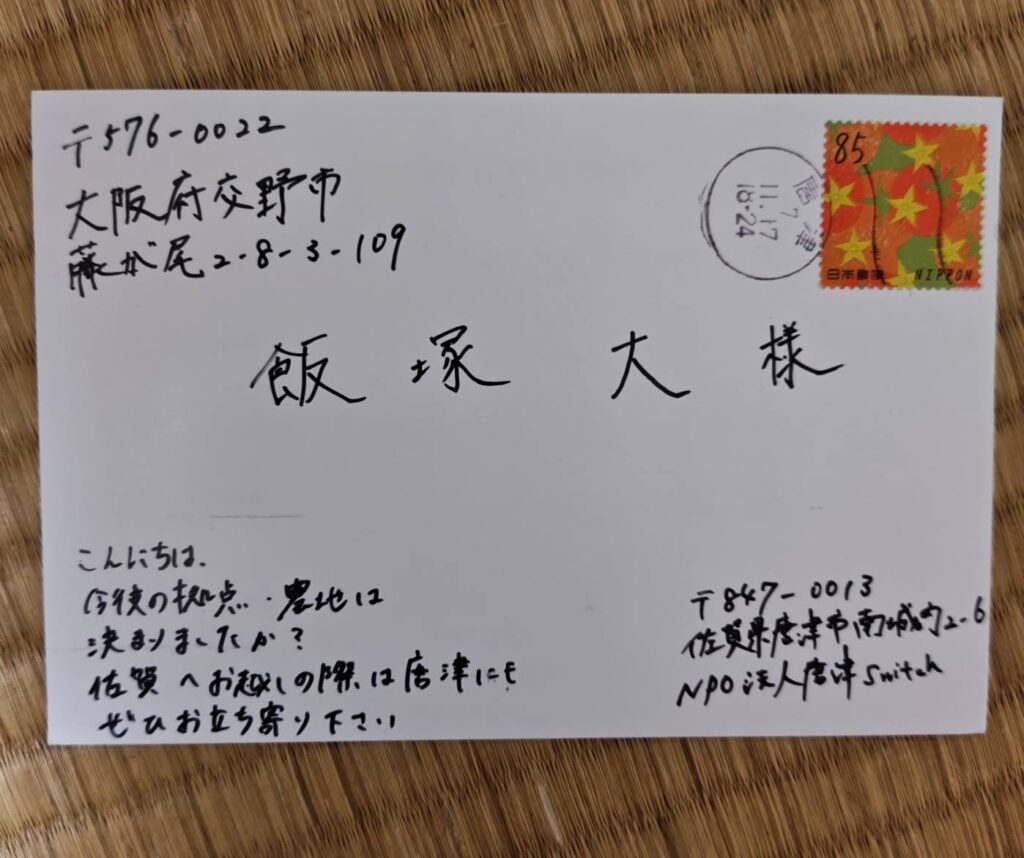 〒576-0022
大阪府交野市
藤が尾2-8-3-109
85
唐津
11.17
18-24
日本郵便 NIPPON
飯塚 大 様
こんにちは、
今後の拠点・農地は
決まりましたか?
佐賀へお越しの際は唐津にも
ぜひお立ち寄り下さい
〒847-0013
佐賀県唐津市南城内2-6
NPO法人唐津Switch